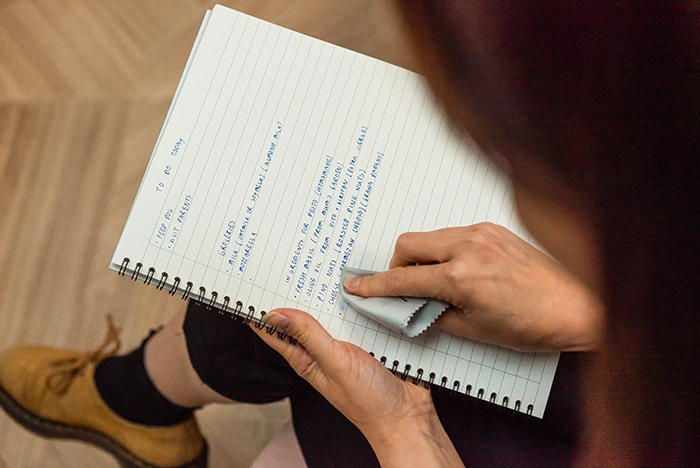 TO DO TODAY
• FEED DOG
• VISIT PARENTS
GROCERIES
• MILK (OATMILK OR SOYMILK) (ALMOND MILK?)
• MOZZARELLA
INGREDIENTS FOR PESTO (HOMEMADE)
• FRESH BASIL (FROM MUM'S GARDEN)
• OLIVE OIL FROM VITO
• PINE NUTS (ROASTED PINE NUTS)
• CHEESE (PARMEZAN CHEESE) (GRANA PADANO)